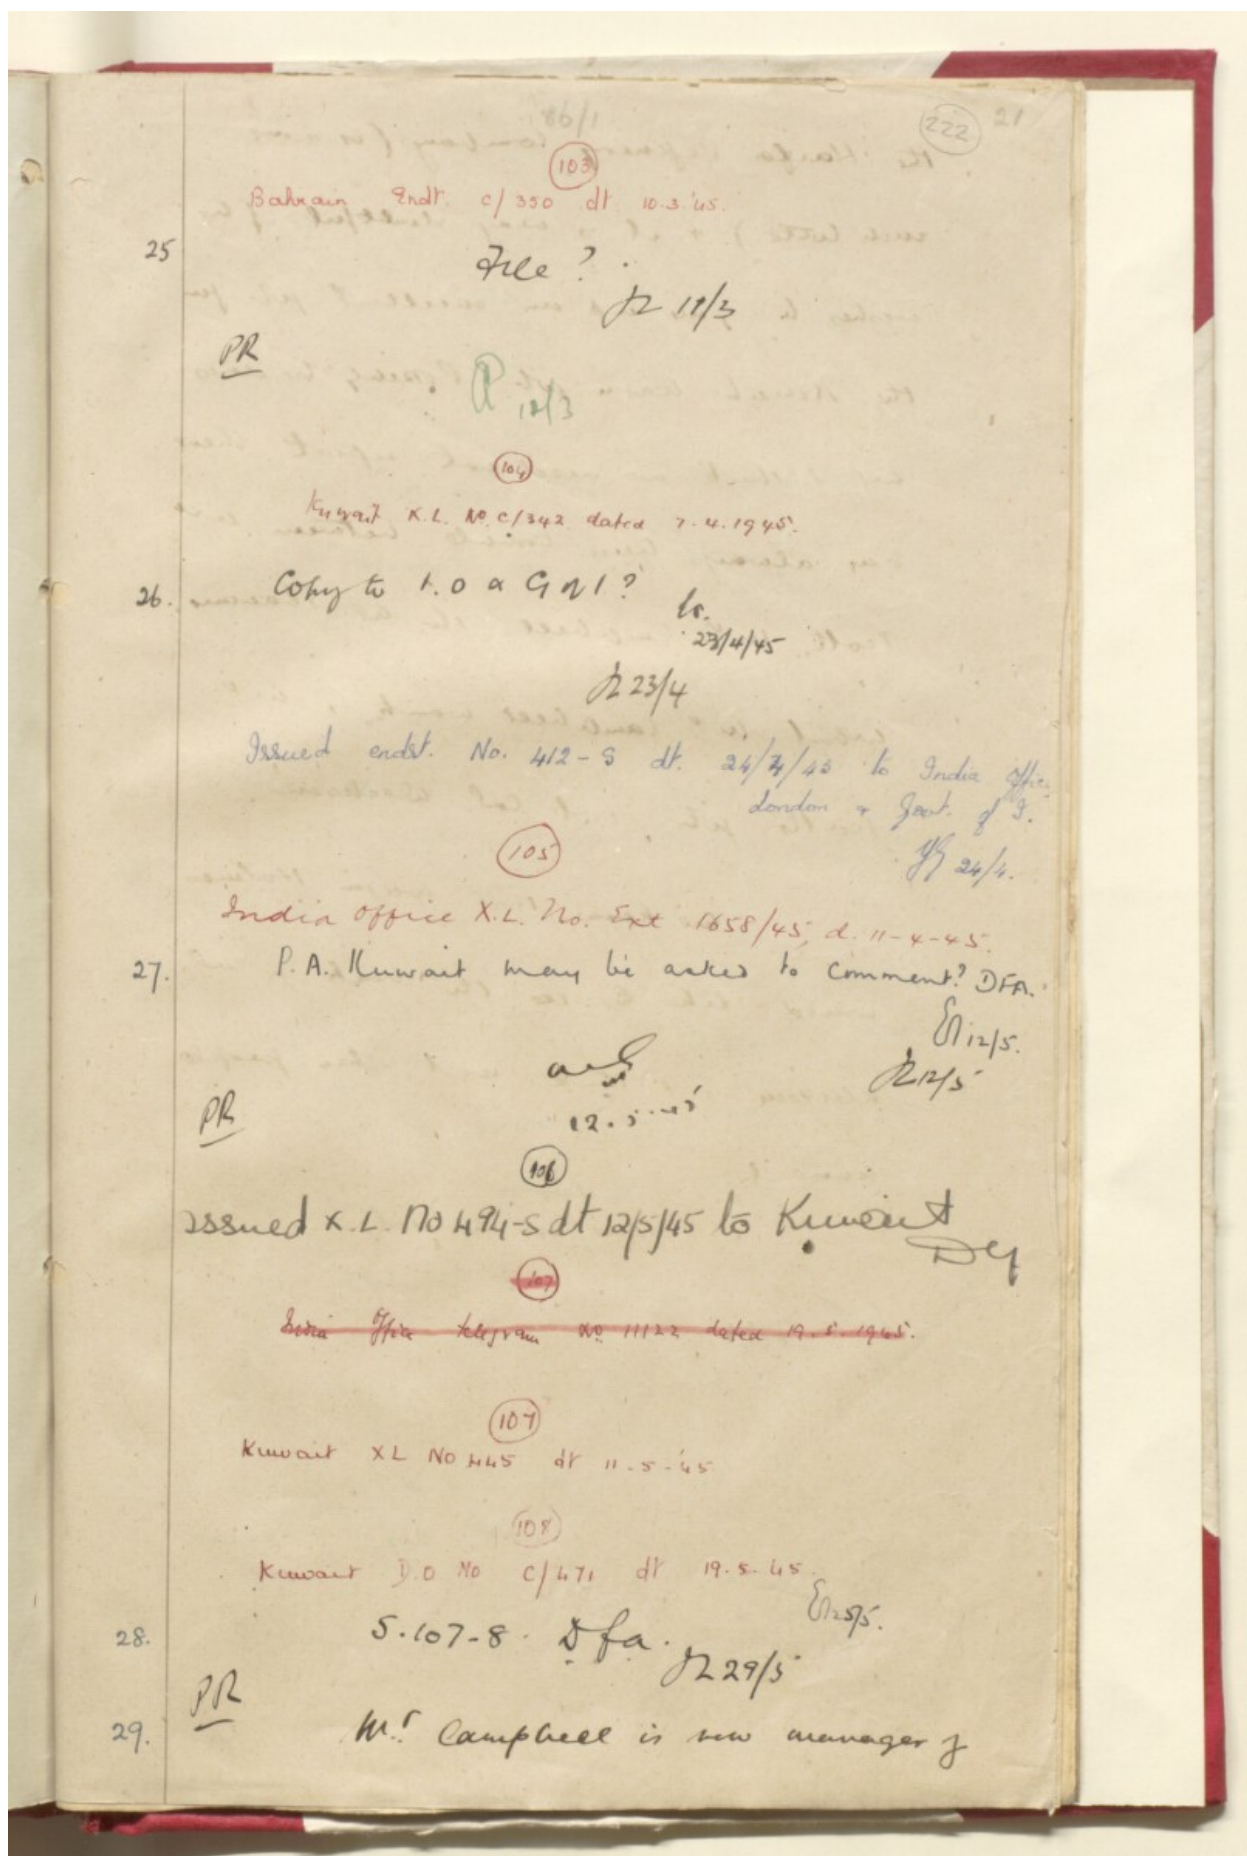 222 21
103
Bahrain Endt. C/350 dt. 10.3.'45.
25
File ?
11/3
PR
12/3
104
Kuwait X.L. No. C/342 dated 7.4.1945.
26. Copy to I.O & G of I ?
23/4/45
23/4
Issued endst. No. 412-S dt. 24/4/45 to India Office
London & Govt. of I.
24/4.
105
India Office X.L. No. Ext 1658/45, d. 11-4-45.
27. P.A. Kuwait may be asked to comment? DFA.
12/5.
12/5
12.5.45
PR
106
Issued X.L. No 494-S dt 12/5/45 to Kuwait
107
India Office telegram No 11122 dated 19.5.1945.
107
Kuwait XL No 445 dt 11.5.'45
108
Kuwait D.O No C/471 dt 19.5.45.
25/5.
28. S.107-8. Dfa.
29/5
PR
29. Mr. Campbell is now manager of